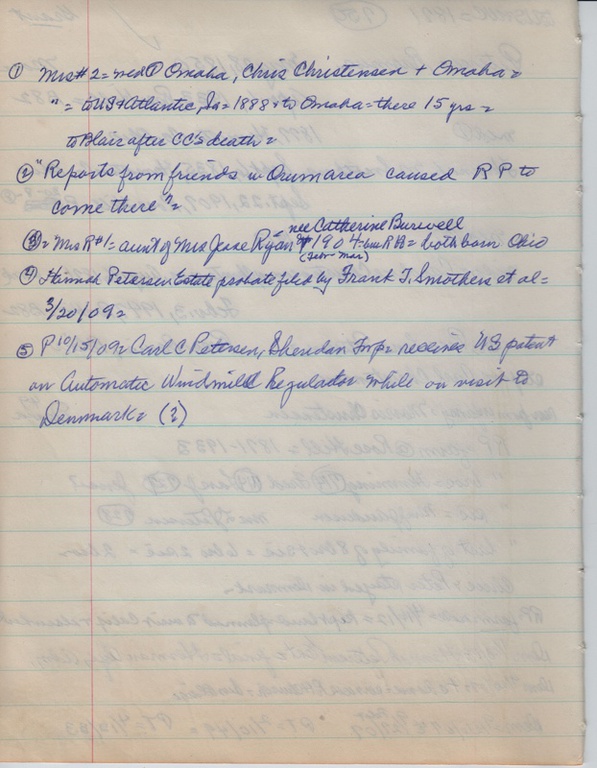 ① Mrs #2 = med ① Omaha, Chris Christensen + Omaha =
" = to US + Atlantic, Ia = 1888 + to Omaha = there 15 yrs =
to Blair after CC's death =
② "Reports from friends in Orum area caused R P to
come there" =
nee Catherine Burwell
③ = Mrs R #1 = aunt of Mrs Jesse Ryan 1904 = both born Ohio
(Feb - Mar)
④ Hannah Petersen Estate probate filed by Frank T. Smothers et al =
3/20/09 =
⑤ P 10/15/09 = Carl C Petersen, Sheridan Twp = receives US patent
on Automatic Windmill Regulator while on visit to
Denmark = (?)